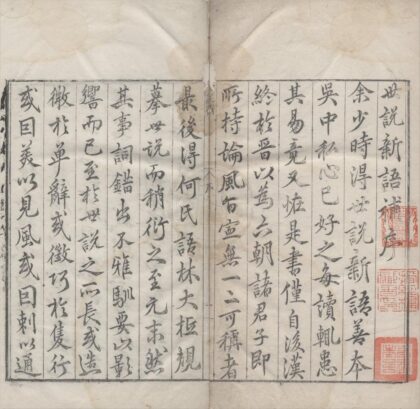 世說新語補序
余少時得世說新語善本
吳中私心已好之每讀輒患
其易竟又怪是書僅自後漢
終於晉以爲六朝諸君子即
所持論風旨寧無一二可稱者
最後得何氏語林大抵規
摹世說而稍衍之至元末然
其事詞錯出不雅馴要以影
響而已至於世說之所長或造
微於單辭或徵巧於隻行
或因美以見風或因刺以通